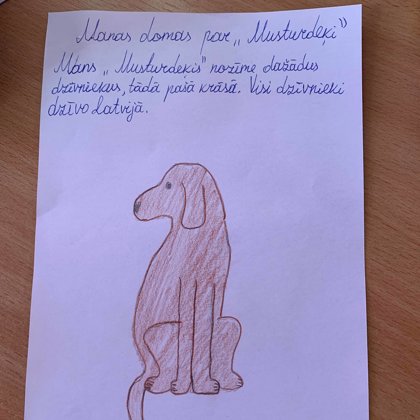 Manas domas par „Musturdeķi"
Mans „Musturdeķis" nozīme dažādus
dzīvniekus, tādā pašā krāsā. Visi dzīvnieki
dzīvo Latvijā.